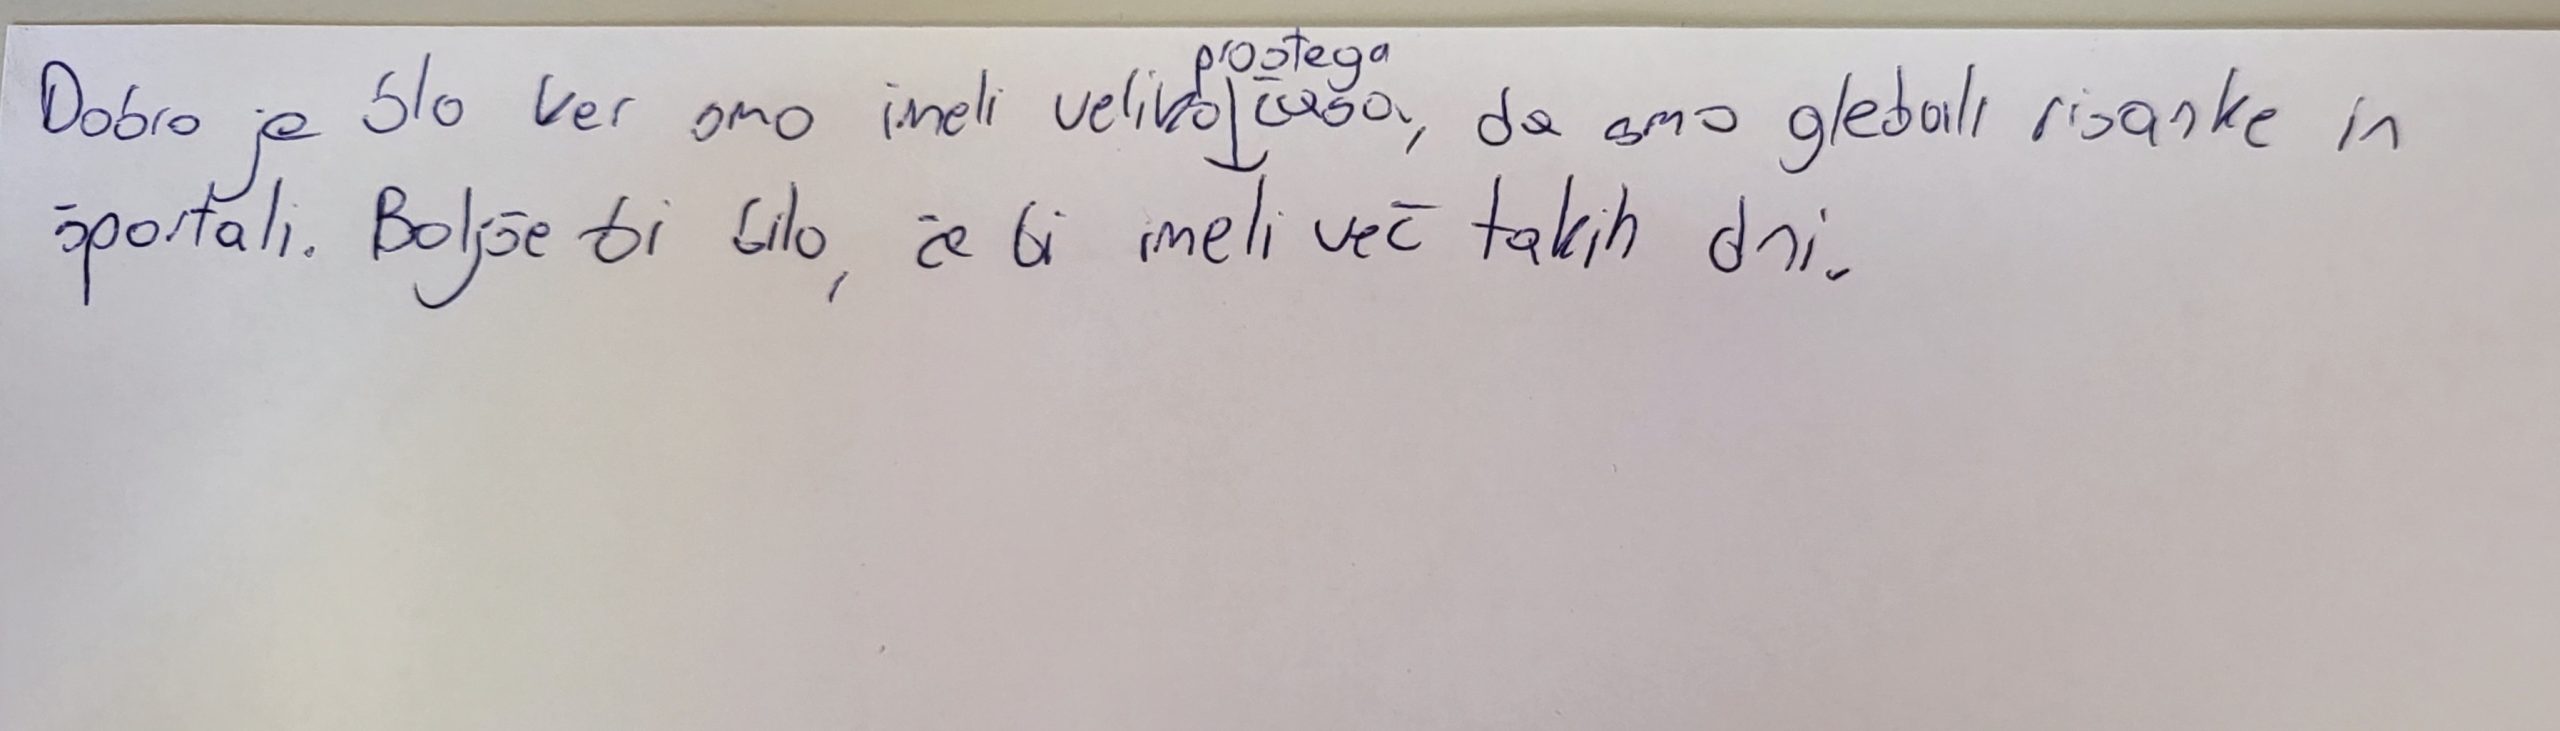 Dobro je šlo ker smo imeli veliko prostega časa, da smo gledali risanke in
športali. Boljše bi bilo, če bi imeli več takih dni.